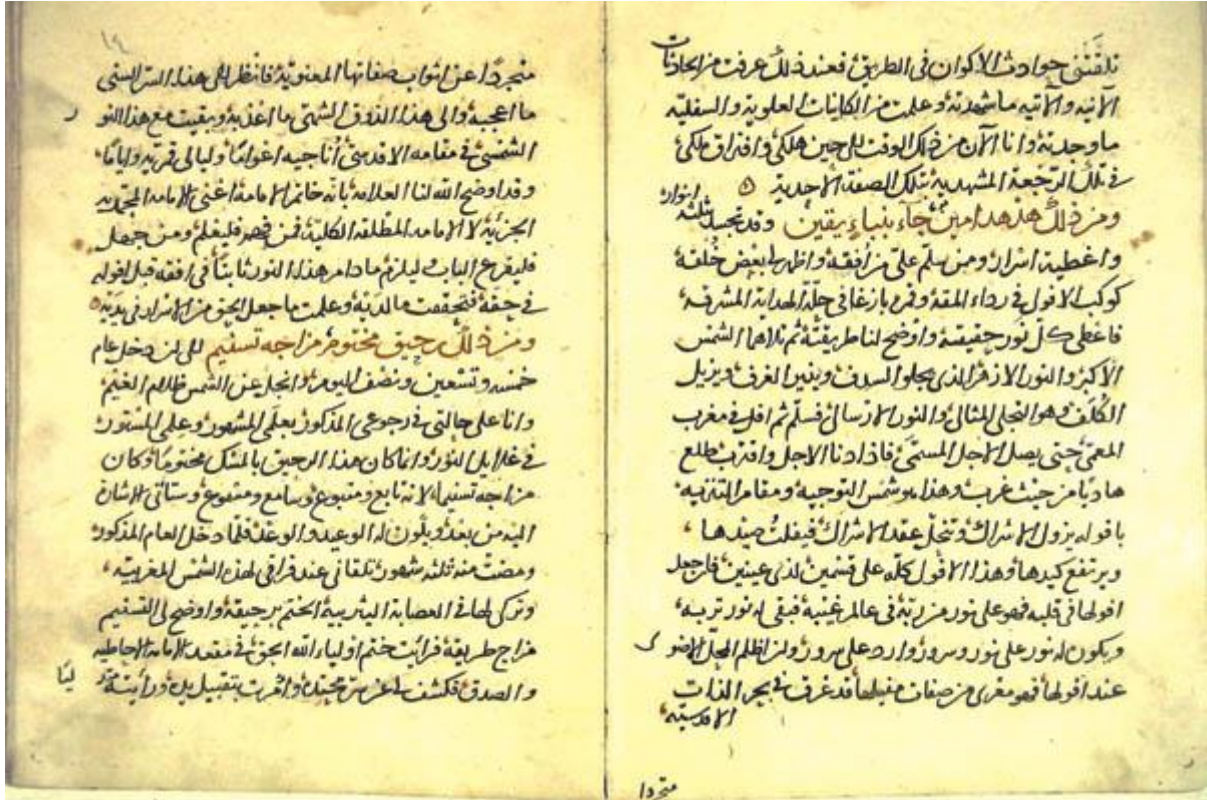 تلقتنى حوادث الاكوان فى الطريق فعند ذلك عرفت من الحادثات
الآنية والآتية ما شهدته وعلمت من الكاينات العلوية والسفلية
ما وجدته وانا الآن من ذلك الوقت الى حين هلكى وافتراق ملكى
فى تلك الرجعة المشهدية بتلك الصفة الاحدية
ومن ذلك هدهد امين جاء بنباء يقين وقد تجسد ثلثة انوار
واغطية اسرار ومن سلم على من افقه واظهر لى بعض خلقه
كوكب الافول فى رداء المقة وقمر بازغا فى حلة الهداية المشرقة
فاعطى كل نور حقيقته واوضح لنا طريقته ثم تلاهما الشمس
الاكبر والنور الازهر الذى يجلو السدف وينير الغرف ويزيل
الكلف وهو التجلى المثالى والنور الارسالى فسلم ثم افل فى مغرب
المعمى حتى يصل الاجل المسمى فاذا دنا الاجل واقترب طلع
هاديا من حيث غرب وهذا هو شمس التوجيه ومقام التنزيه
بافوله يزول الاشراك وتنحل عقد الاشراك فيفلت صيدها
ويرتفع كيدها وهذا الافول كله على قسمين لذى عينين فان جعل
افولها فى قلبه فهو على نور من ربه فى عالم غيبه فبقى له نور تربه
ويكون له نور على نور وسرور وارد على سرور وان اظلم المحل الاضو
عند افولها فهو معرى من صفات مغيلها قد غرق فى بحر الذات
الاقدسية
متجردا
١٤
متجردا عن اثواب صفاتها المعنوية فانظر الى هذا السر السنى
ما اعجبه والى هذا الذوق الشهى ما اعذبه وبقيت مع هذا النور
الشمسى فى مقامه الاقدسى اناجيه اعواما وليالى قمرية واياما
وقد اوضح الله لنا العلامه بانه خاتم الامامة اعنى الامامة المحمدية
الجزئية لا الامامه المطلقه الكلية فمن فهم فليعلم ومن جهل
فليقرع الباب وليلزم ما دام هذا النور ثابتا فى افقه قبل افوله
فى حقه فتحققت ما لديه وعلمت ما جعل الحق من الاسرار فى يديه
ومن ذلك رحيق مختوم مزاجه تسنيم الى ان دخل عام
خمسة وتسعين ونصف اليوم وانجلى عن الشمس ظلام الغيم
وانا على حالتى فى رجوعى المذكور بعلمى المشهور وعلمى المستور
فى غلايل النور وانما كان هذا الرحيق بالمسك مختوما وكان
مزاجه تسنيما لانه تابع ومتبوع وسامع ومسموع وستأتى الاشارة
اليه من بعد ويكون له الوعيد والوعد فلما دخل العام المذكور
ومضت منه ثلثه شهور تلقانى عند فراقى لهذه الشمس المغربية
وتركى لها فى العصابة اليثربية الختم برحيقه واوضح لى التسنيم
مزاج طريقه فرأيت ختم اولياء الله الحق فى مقعد الامامة الاحاطيه
والصدق فكشف لى عن سر محتده وامرت بتقبيل يده ورأيته